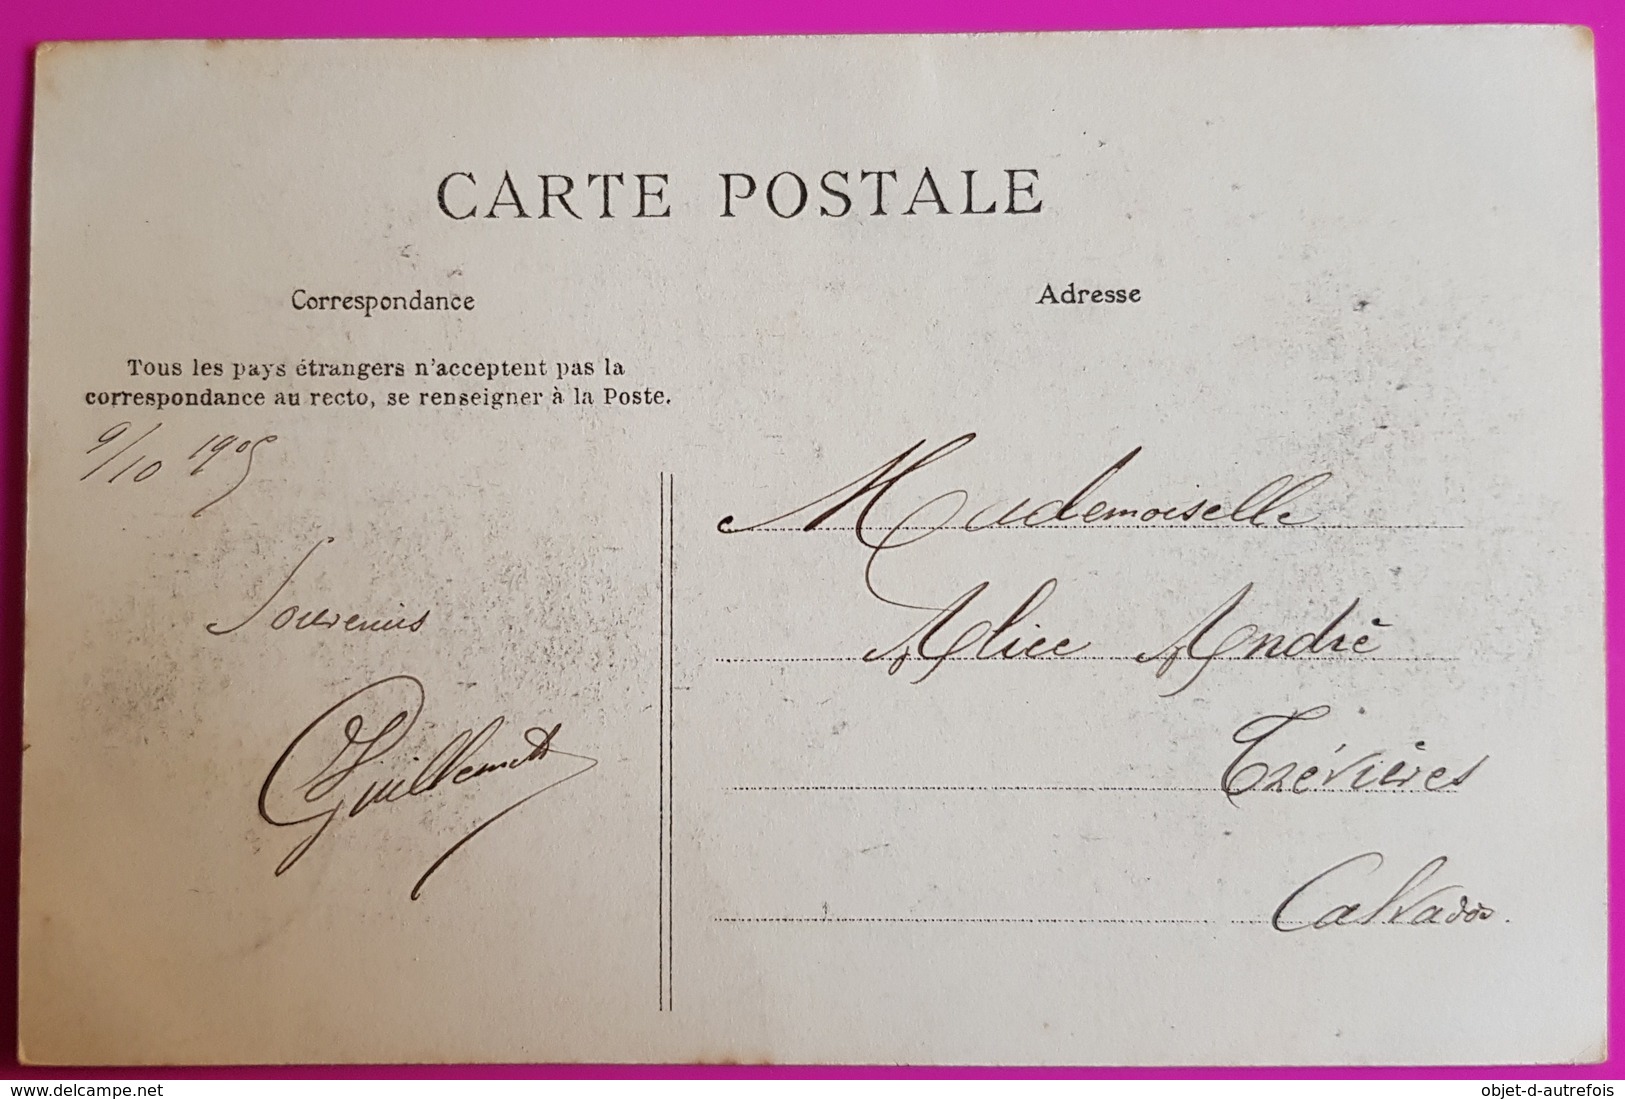 CARTE POSTALE
Correspondance
Adresse
Tous les pays étrangers n'acceptent pas la
correspondance au recto, se renseigner à la Poste.
9/10 1905
Souvenirs
Mademoiselle
Alice André
Trévières
Calvados.
delcampe.net
objet-d-autrefois